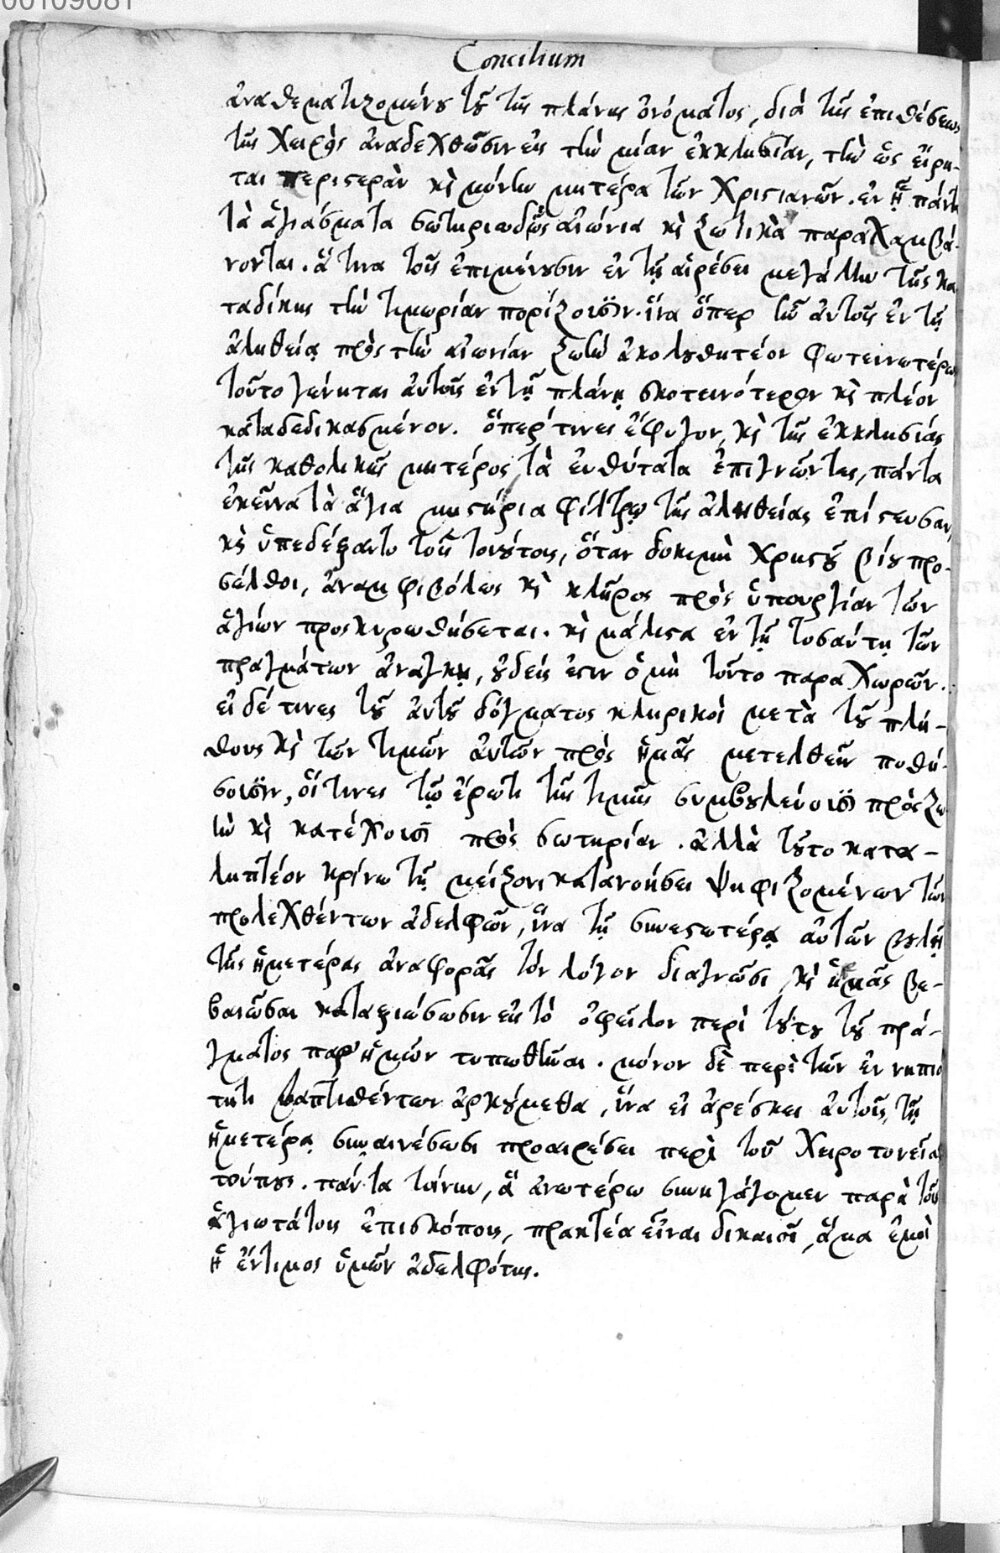 00109081
Concilium
ἀναθεματιζομένου τοῦ τῆς πλάνης ὀνόματος, διὰ τῆς ἐπιθέσεως
τῆς χειρὸς ἀναδεχθῶσιν εἰς τὴν μίαν ἐκκλησίαν, τὴν ὡς εἴρη-
ται περιστερὰν κὶ μόνην μητέρα τῶν χριστιανῶν. ἐν ᾗ πάντα
τὰ ἁγιάσματα σωτηριωδῶς αἰώνια κὶ ζωτικὰ παραλαμβά-
νονται. ἅτινα τοῖς ἐπιμένουσιν ἐν τῇ αἱρέσει μεγάλην τῆς κα
ταδίκης τὴν τιμωρίαν πορίζουσιν. ἵνα ὅπερ ἦν αὐτοῖς ἐν τῇ
ἀληθείᾳ πρὸς τὴν αἰωνίαν ζωὴν ἀκολουθητέον φωτεινωτέρως
τοῦτο γένηται αὐτοῖς ἐν τῇ πλάνῃ σκοτεινότερον κὶ πλέον
καταδεδικασμένον. ὅπερ τινες ἔφυγον, κὶ τῆς ἐκκλησίας
τῆς καθολικῆς μητέρος τὰ εὐθύτατα ἐπιγνῶντες, πάντα
ἐκεῖνα τὰ ἅγια μυστήρια φίλτρῳ τῆς ἀληθείας ἐπίστευσαν,
κὶ ὑπεδέξαντο τοῖς τοιούτοις, ὅταν δοκιμὴ χρηστοῦ βίου προ-
σέλθοι, ἀναμφιβόλως κὶ κλῆρος πρὸς ὑπουργίαν τῶν
ἁγίων προσκυρωθήσεται. κὶ μάλιστα ἐν τῇ τοσαύτῃ τῶν
πραγμάτων ἀνάγκῃ, οὐδείς ἐστιν ὁ μὴ τοῦτο παραχωρῶν.
εἰ δέ τινες τοῦ αὐτοῦ δόγματος κληρικοὶ μετὰ τοῦ πλή-
θους κὶ τῶν τιμῶν αὐτῶν πρὸς ἡμᾶς μετελθεῖν ποθή-
σοισιν, οἵτινες τῷ ἔρωτι τῆς τιμῆς συμβουλεύουσι πρὸς ζω
ὴν κὶ κατέχουσι πρὸς σωτηρίαν. ἀλλὰ τοῦτο κατα-
ληπτέον κρίνω τῇ μείζονι κατανοήσει ψηφιζομένων τῶν
προλεχθέντων ἀδελφῶν, ἵνα τῇ συνεστωτέρᾳ αὐτῶν βουλῇ
τῆς ἡμετέρας ἀναφορᾶς τὸν λόγον διαγνῶσι, κὶ ἡμᾶς βε-
βαιῶσαι καταξιώσωσιν εἰς τὸ ὀφεῖλον περὶ τούτου τοῦ πρά-
γματος παρ' ἡμῶν τυπωθῆναι. μόνον δὲ περὶ τῶν ἐν νηπιό
τητι βαπτισθέντων ἀρκούμεθα, ἵνα εἰ ἀρέσκει αὐτοῖς, τῇ
ἡμετέρᾳ συναινέσωσι προαιρέσει περὶ τοῦ χειροτονεῖσθαι
τούτους. πάντα τοίνυν, ἃ ἀνωτέρω συνηγάγομεν παρὰ τοῖς
ἁγιωτάτοις ἐπισκόποις, πρακτέα εἶναι δικαιοῖ, ἅμα ἐμοὶ
ἡ ἔντιμος ὑμῶν ἀδελφότης.